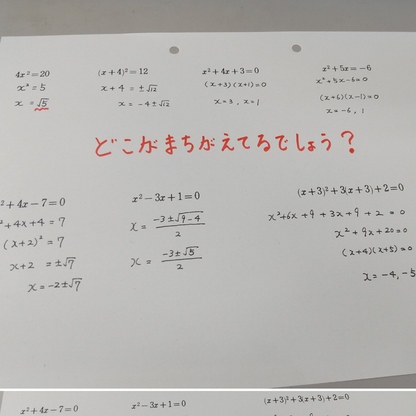 4x²=20
x²=5
x =√5
(x+4)²=12
x+4 =±√12
x=-4±√12
x²+4x+3=0
(x+3)(x+1)=0
x=3, x=1
x²+5x=-6
x²+5x-6=0
(x+6)(x-1)=0
x=-6, 1
どこがまちがえてるでしょう?
²+4x-7=0
²+4x+4=7
(x+2)²=7
x+2 =±√7
x=-2±√7
x²-3x+1=0
x=(-3±√9-4)/2
x=(-3±√5)/2
(x+3)²+3(x+3)+2=0
x²+6x+9+3x+9+2=0
x²+9x+20=0
(x+4)(x+5)=0
x=-4,-5
x²+4x-7=0
x²-3x+1=0
(x+3)²+3(x+3)+2=0